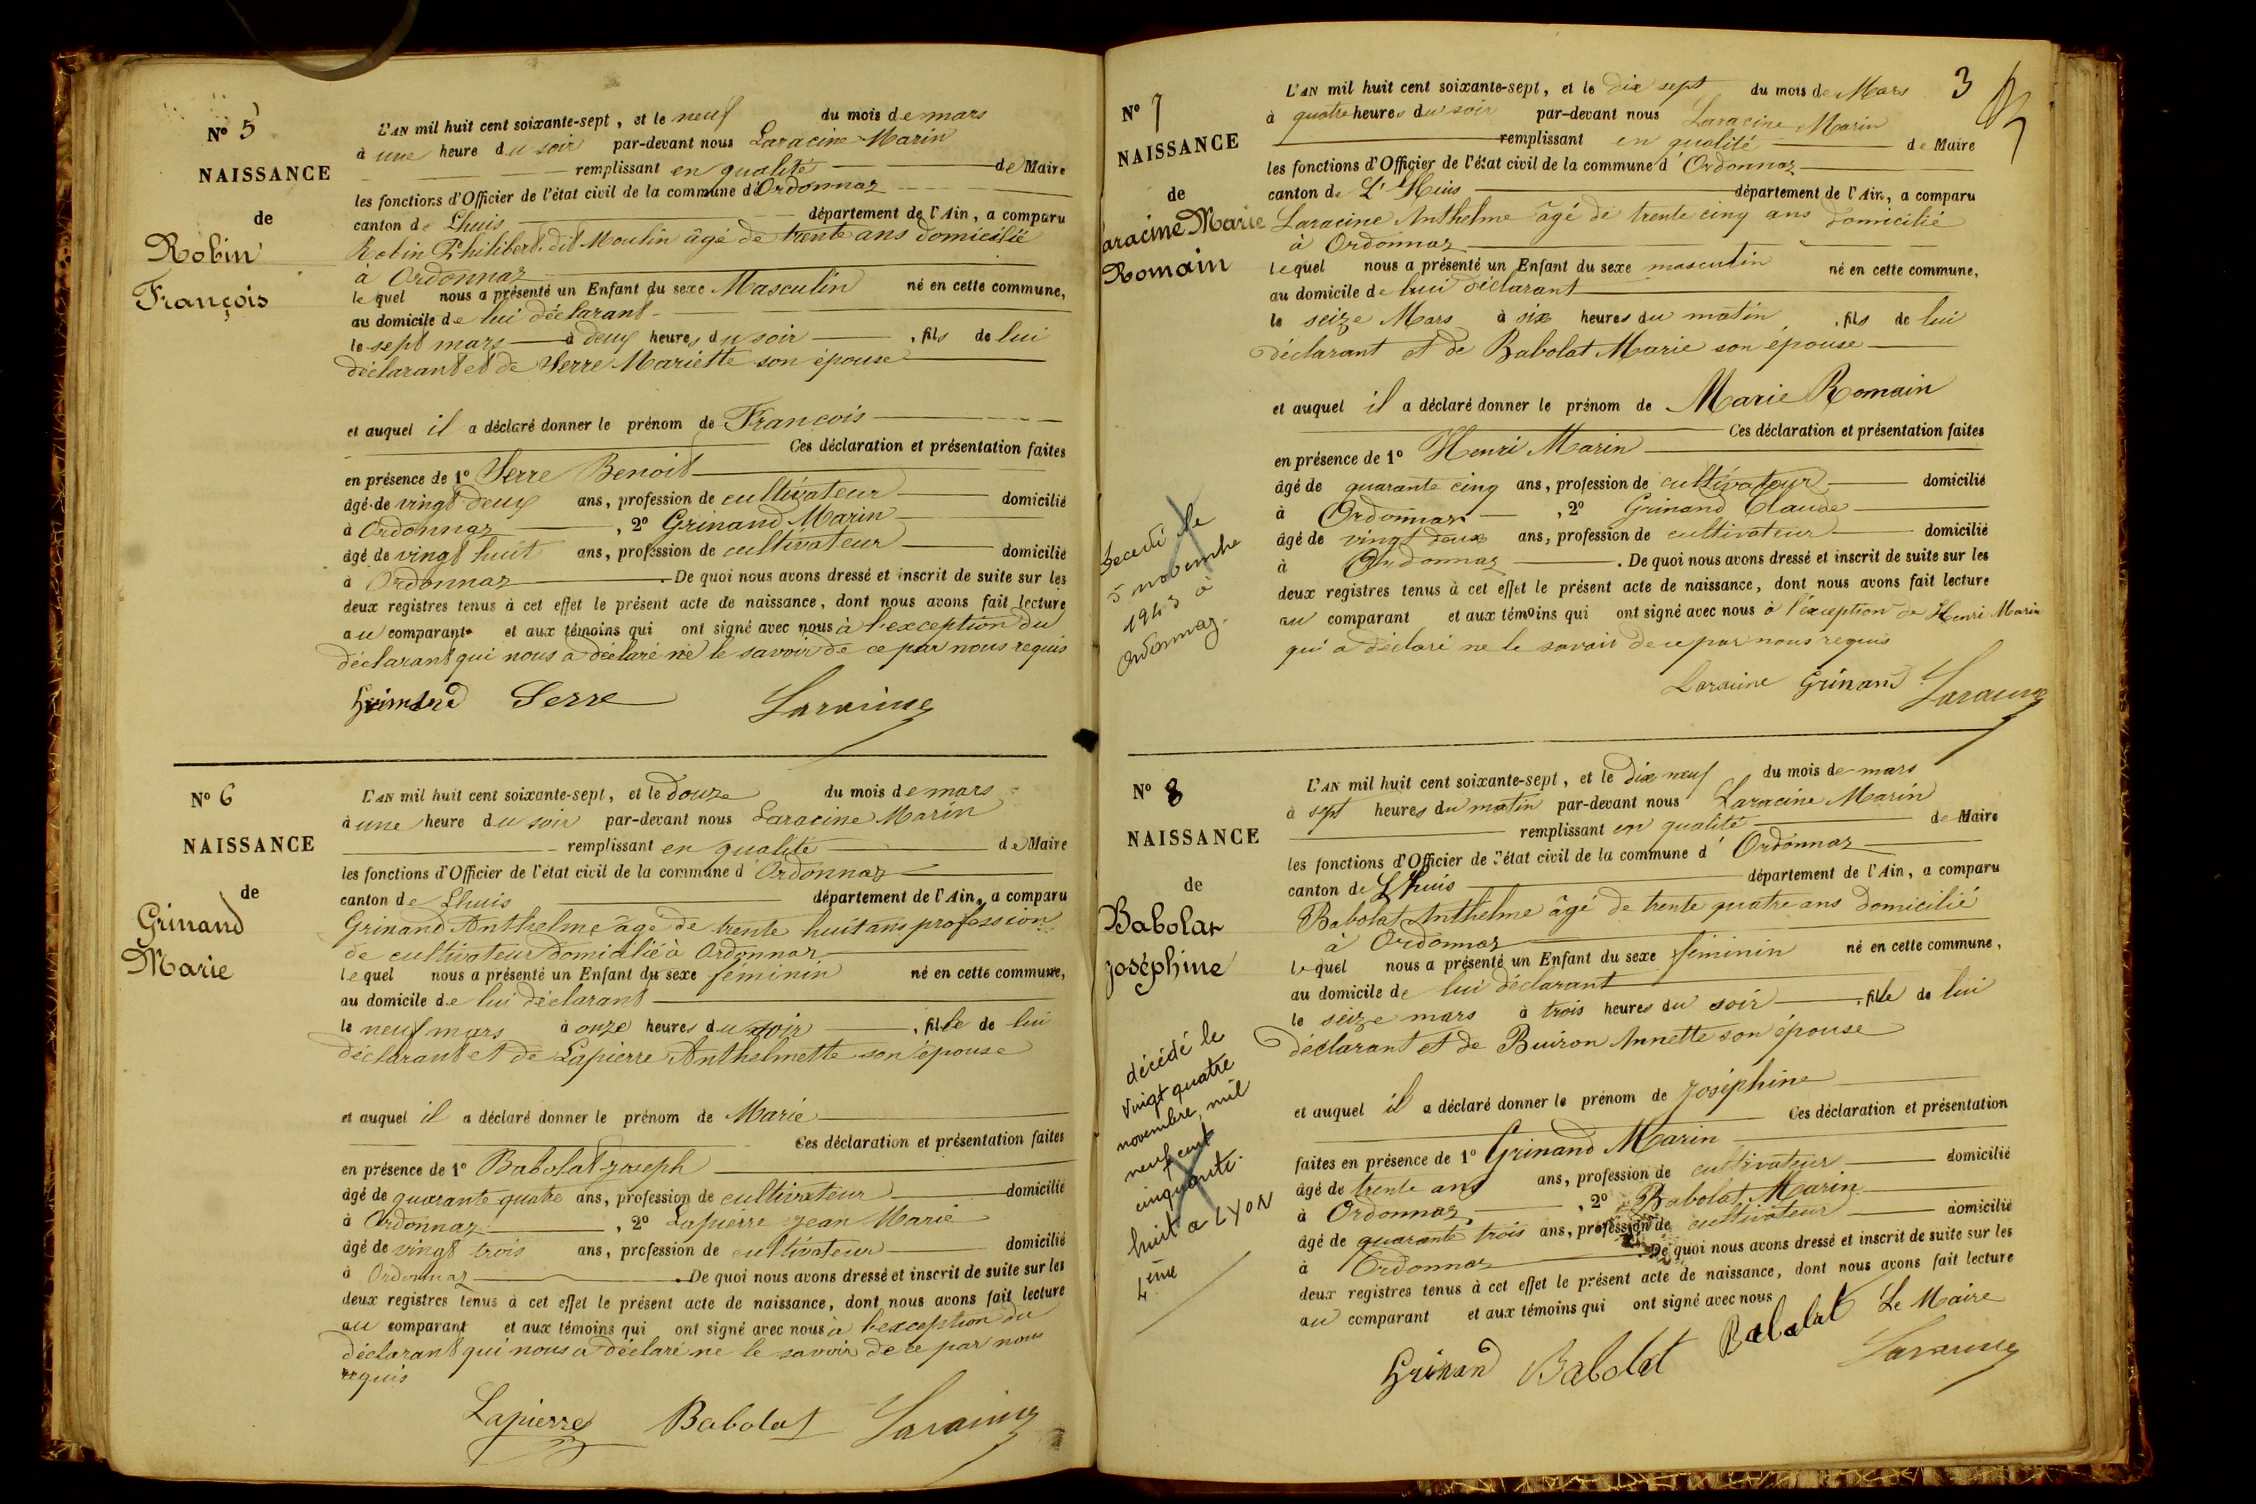 N° 5
NAISSANCE
de
Robin
François
L'AN mil huit cent soixante-sept, et le neuf du mois de mars
à une heure du soir par-devant nous Laracine Marin
remplissant en qualité de Maire
les fonctions d'Officier de l'état civil de la commune d'Ordonnaz
canton de Lhuis département de l'Ain, a comparu
Robin Philibert dit Moulin âgé de trente ans domicilié
à Ordonnaz
lequel nous a présenté un Enfant du sexe Masculin né en cette commune,
au domicile de lui déclarant
le sept mars à deux heures du soir, fils de lui
déclarant et de Serre Mariette son épouse
et auquel il a déclaré donner le prénom de François
Ces déclaration et présentation faites
en présence de 1° Serre Benoit
âgé de vingt deux ans, profession de cultivateur domicilié
à Ordonnaz, 2° Grinand Marin
âgé de vingt huit ans, profession de cultivateur domicilié
à Ordonnaz. De quoi nous avons dressé et inscrit de suite sur les
deux registres tenus à cet effet le présent acte de naissance, dont nous avons fait lecture
au comparant et aux témoins qui ont signé avec nous à l'exception du
déclarant qui nous a déclaré ne le savoir de ce par nous requis
Grinand Serre Laracine
N° 6
NAISSANCE
de
Grinand
Marie
L'AN mil huit cent soixante-sept, et le douze du mois de mars
à une heure du soir par-devant nous Laracine Marin
remplissant en qualité de Maire
les fonctions d'Officier de l'état civil de la commune d'Ordonnaz
canton de Lhuis département de l'Ain, a comparu
Grinand Anthelme âgé de trente huit ans profession
de cultivateur domicilié à Ordonnaz
lequel nous a présenté un Enfant du sexe féminin né en cette commune,
au domicile de lui déclarant
le neuf mars à onze heures du soir, fille de lui
déclarant et de Lapierre Anthelmette son épouse
et auquel il a déclaré donner le prénom de Marie
Ces déclaration et présentation faites
en présence de 1° Babolat Joseph
âgé de quarante quatre ans, profession de cultivateur domicilié
à Ordonnaz, 2° Lapierre Jean Marie
âgé de vingt trois ans, profession de cultivateur domicilié
à Ordonnaz. De quoi nous avons dressé et inscrit de suite sur les
deux registres tenus à cet effet le présent acte de naissance, dont nous avons fait lecture
au comparant et aux témoins qui ont signé avec nous à l'exception du
déclarant qui nous a déclaré ne le savoir de ce par nous
requis
Lapierre Babolat Laracine
3
N° 7
NAISSANCE
de
Laracine Marie
Romain
Décédé le
5 novembre
1943 à
Ordonnaz.
L'AN mil huit cent soixante-sept, et le dix sept du mois de Mars
à quatre heures du soir par-devant nous Laracine Marin
remplissant en qualité de Maire
les fonctions d'Officier de l'état civil de la commune d'Ordonnaz
canton de L'Huis département de l'Ain, a comparu
Laracine Anthelme âgé de trente cinq ans domicilié
à Ordonnaz
lequel nous a présenté un Enfant du sexe masculin né en cette commune,
au domicile de lui déclarant
le seize Mars à six heures du matin, fils de lui
déclarant et de Babolat Marie son épouse
et auquel il a déclaré donner le prénom de Marie Romain
Ces déclaration et présentation faites
en présence de 1° Henri Marin
âgé de quarante cinq ans, profession de cultivateur domicilié
à Ordonnaz, 2° Grinand Claude
âgé de vingt deux ans, profession de cultivateur domicilié
à Ordonnaz. De quoi nous avons dressé et inscrit de suite sur les
deux registres tenus à cet effet le présent acte de naissance, dont nous avons fait lecture
au comparant et aux témoins qui ont signé avec nous à l'exception de Henri Marin
qui a déclaré ne le savoir de ce par nous requis
Laracine Grinand Laracine
N° 8
NAISSANCE
de
Babolat
Joséphine
décédé le
vingt quatre
novembre, mil
neuf cent
cinquante.
huit à LYON
4ème
L'AN mil huit cent soixante-sept, et le dix neuf du mois de mars
à sept heures du matin par-devant nous Laracine Marin
remplissant en qualité de Maire
les fonctions d'Officier de l'état civil de la commune d'Ordonnaz
canton de Lhuis département de l'Ain, a comparu
Babolat Anthelme âgé de trente quatre ans domicilié
à Ordonnaz
lequel nous a présenté un Enfant du sexe féminin né en cette commune,
au domicile de lui déclarant
le seize mars à trois heures du soir, fille de lui
déclarant et de Buiron Annette son épouse
et auquel il a déclaré donner le prénom de Joséphine
Ces déclaration et présentation
faites en présence de 1° Grinand Marin
âgé de trente ans ans, profession de cultivateur domicilié
à Ordonnaz, 2° Babolat Marin
âgé de quarante trois ans, profession de cultivateur domicilié
à Ordonnaz. De quoi nous avons dressé et inscrit de suite sur les
deux registres tenus à cet effet le présent acte de naissance, dont nous avons fait lecture
au comparant et aux témoins qui ont signé avec nous
Grinand Babolat Babolat Le Maire
Laracine